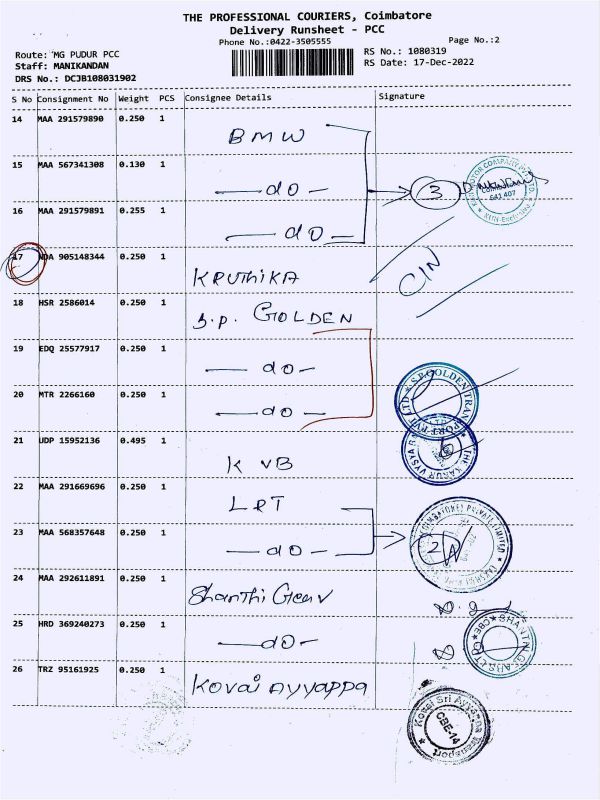 THE PROFESSIONAL COURIERS, Coimbatore
Delivery Runsheet - PCC
Phone No.:0422-3505555
Page No.:2
Route: MG PUDUR PCC
RS No.: 1080319
Staff: MANIKANDAN
RS Date: 17-Dec-2022
DRS No.: DCJB108031902
S No Consignment No Weight PCS Consignee Details Signature
14 MAA 291579890 0.250 1 BMW
15 MAA 567341308 0.130 1 — do — 3
COIMBATORE
641 407
16 MAA 291579891 0.255 1 — do —
17 NDA 905148344 0.250 1 KRUTHIKA C/N
18 HSR 2586014 0.250 1 S.P. GOLDEN
19 EDQ 25577917 0.250 1 — do —
20 MTR 2266160 0.250 1 — do —
S.P.GOLDEN TRANSPORT PVT LTD
21 UDP 15952136 0.495 1 K VB
THE KARUR VYSYA
22 MAA 291669696 0.250 1 LRT
23 MAA 568357648 0.250 1 — do — 2
(COIMBATORE) PRIVATE LIMITED
24 MAA 292611891 0.250 1 Shanthi Gear
25 HRD 369240273 0.250 1 — do —
SHANTHI GEARS LTD CBE
26 TRZ 95161925 0.250 1 Kovai Ayyappa
Kovai Sri Ayyappa Transport
CBE-14